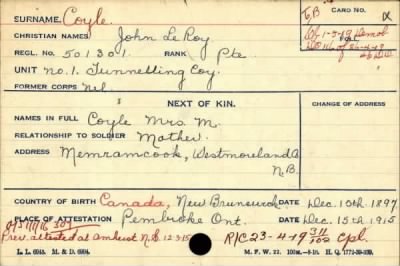 SURNAME. Coyle. T.B CARD NO.
CHRISTIAN NAMES John LeRoy
REGL. NO. 501301. RANK Pte.
UNIT No. 1. Tunnelling Coy.
FORMER CORPS Nil.
NEXT OF KIN. CHANGE OF ADDRESS
NAMES IN FULL Coyle Mrs. M.
RELATIONSHIP TO SOLDIER Mother.
ADDRESS Memramcook, Westmoreland Co
N.B.
COUNTRY OF BIRTH Canada, New Brunswick DATE Dec. 10th. 1897
PLACE OF ATTESTATION Pembroke Ont. DATE Dec. 15th 1915
Prev. attested at Amherst N.S. R/C 23-4-19 311/102 Cpl.
L. L. 6043. M. & D. 6904. M. F. W. 22.